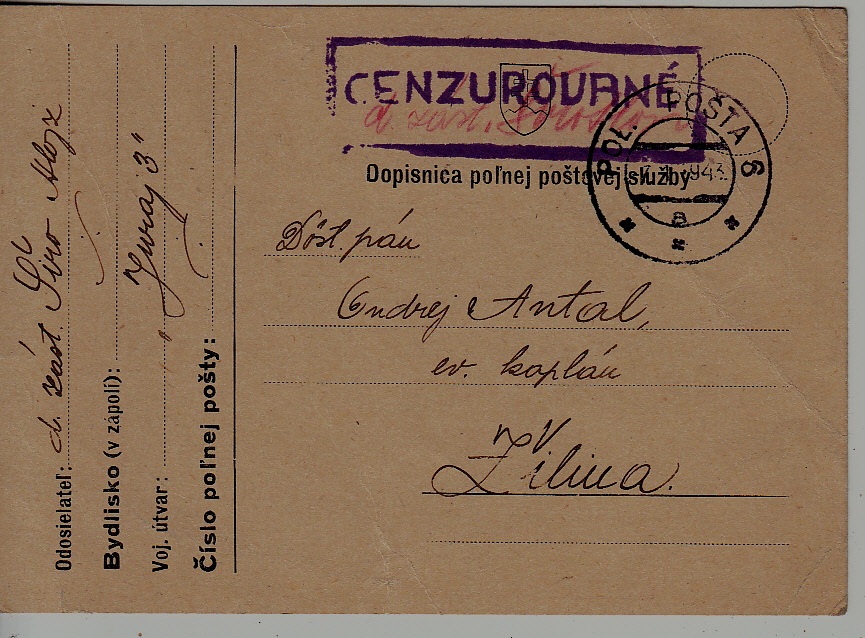 CENZUROVANÉ
d. zást.
POĽ. POŠTA 6
943
a
Dopisnica poľnej poštovej služby
Dôst. pán
Ondrej Antal,
ev. kaplán
Žilina.
Odosielateľ: d. zást. Širo Alojz
Bydlisko (v zápolí):
Voj. útvar: „Juraj 3"
Číslo poľnej pošty: